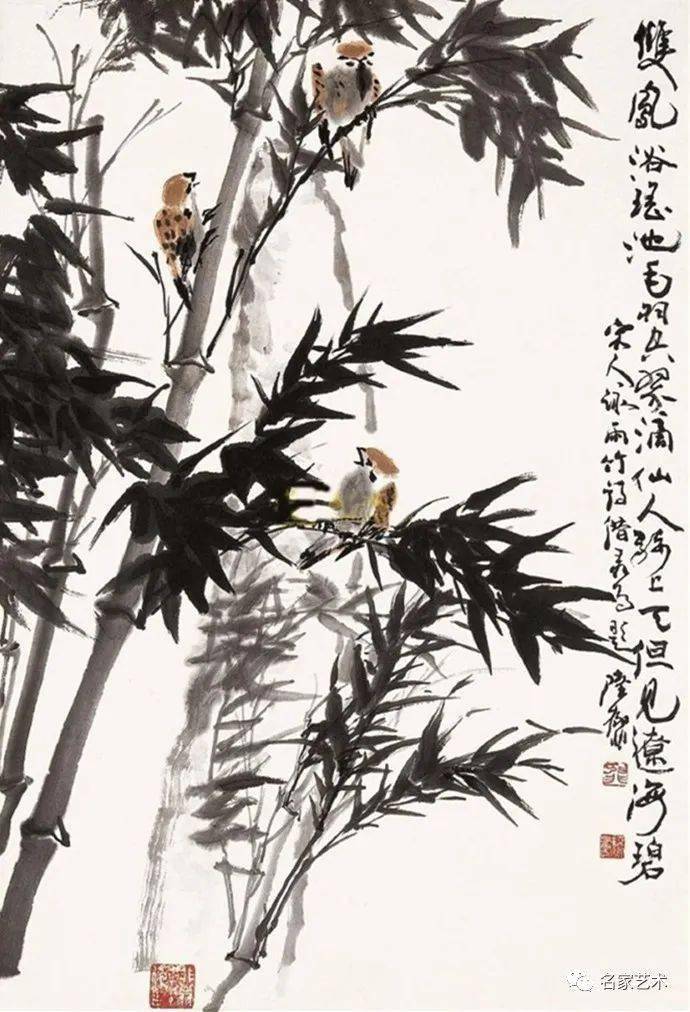 雙鳳浴瑤池毛羽共翠滴仙人騎上天但見遼海碧
宋人詠雨竹詩借录为題
名家艺术